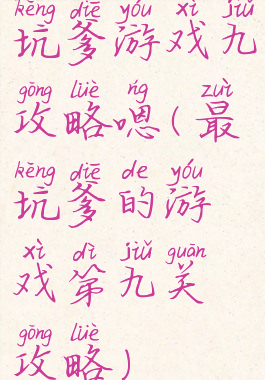 kēng diē yóu xì jiǔ
坑爹游戏九
gōng lüè ńg zuì
攻略嗯(最
kēng diē de yóu
坑爹的游
xì dì jiǔ guān
戏第九关
gōng lüè
攻略)